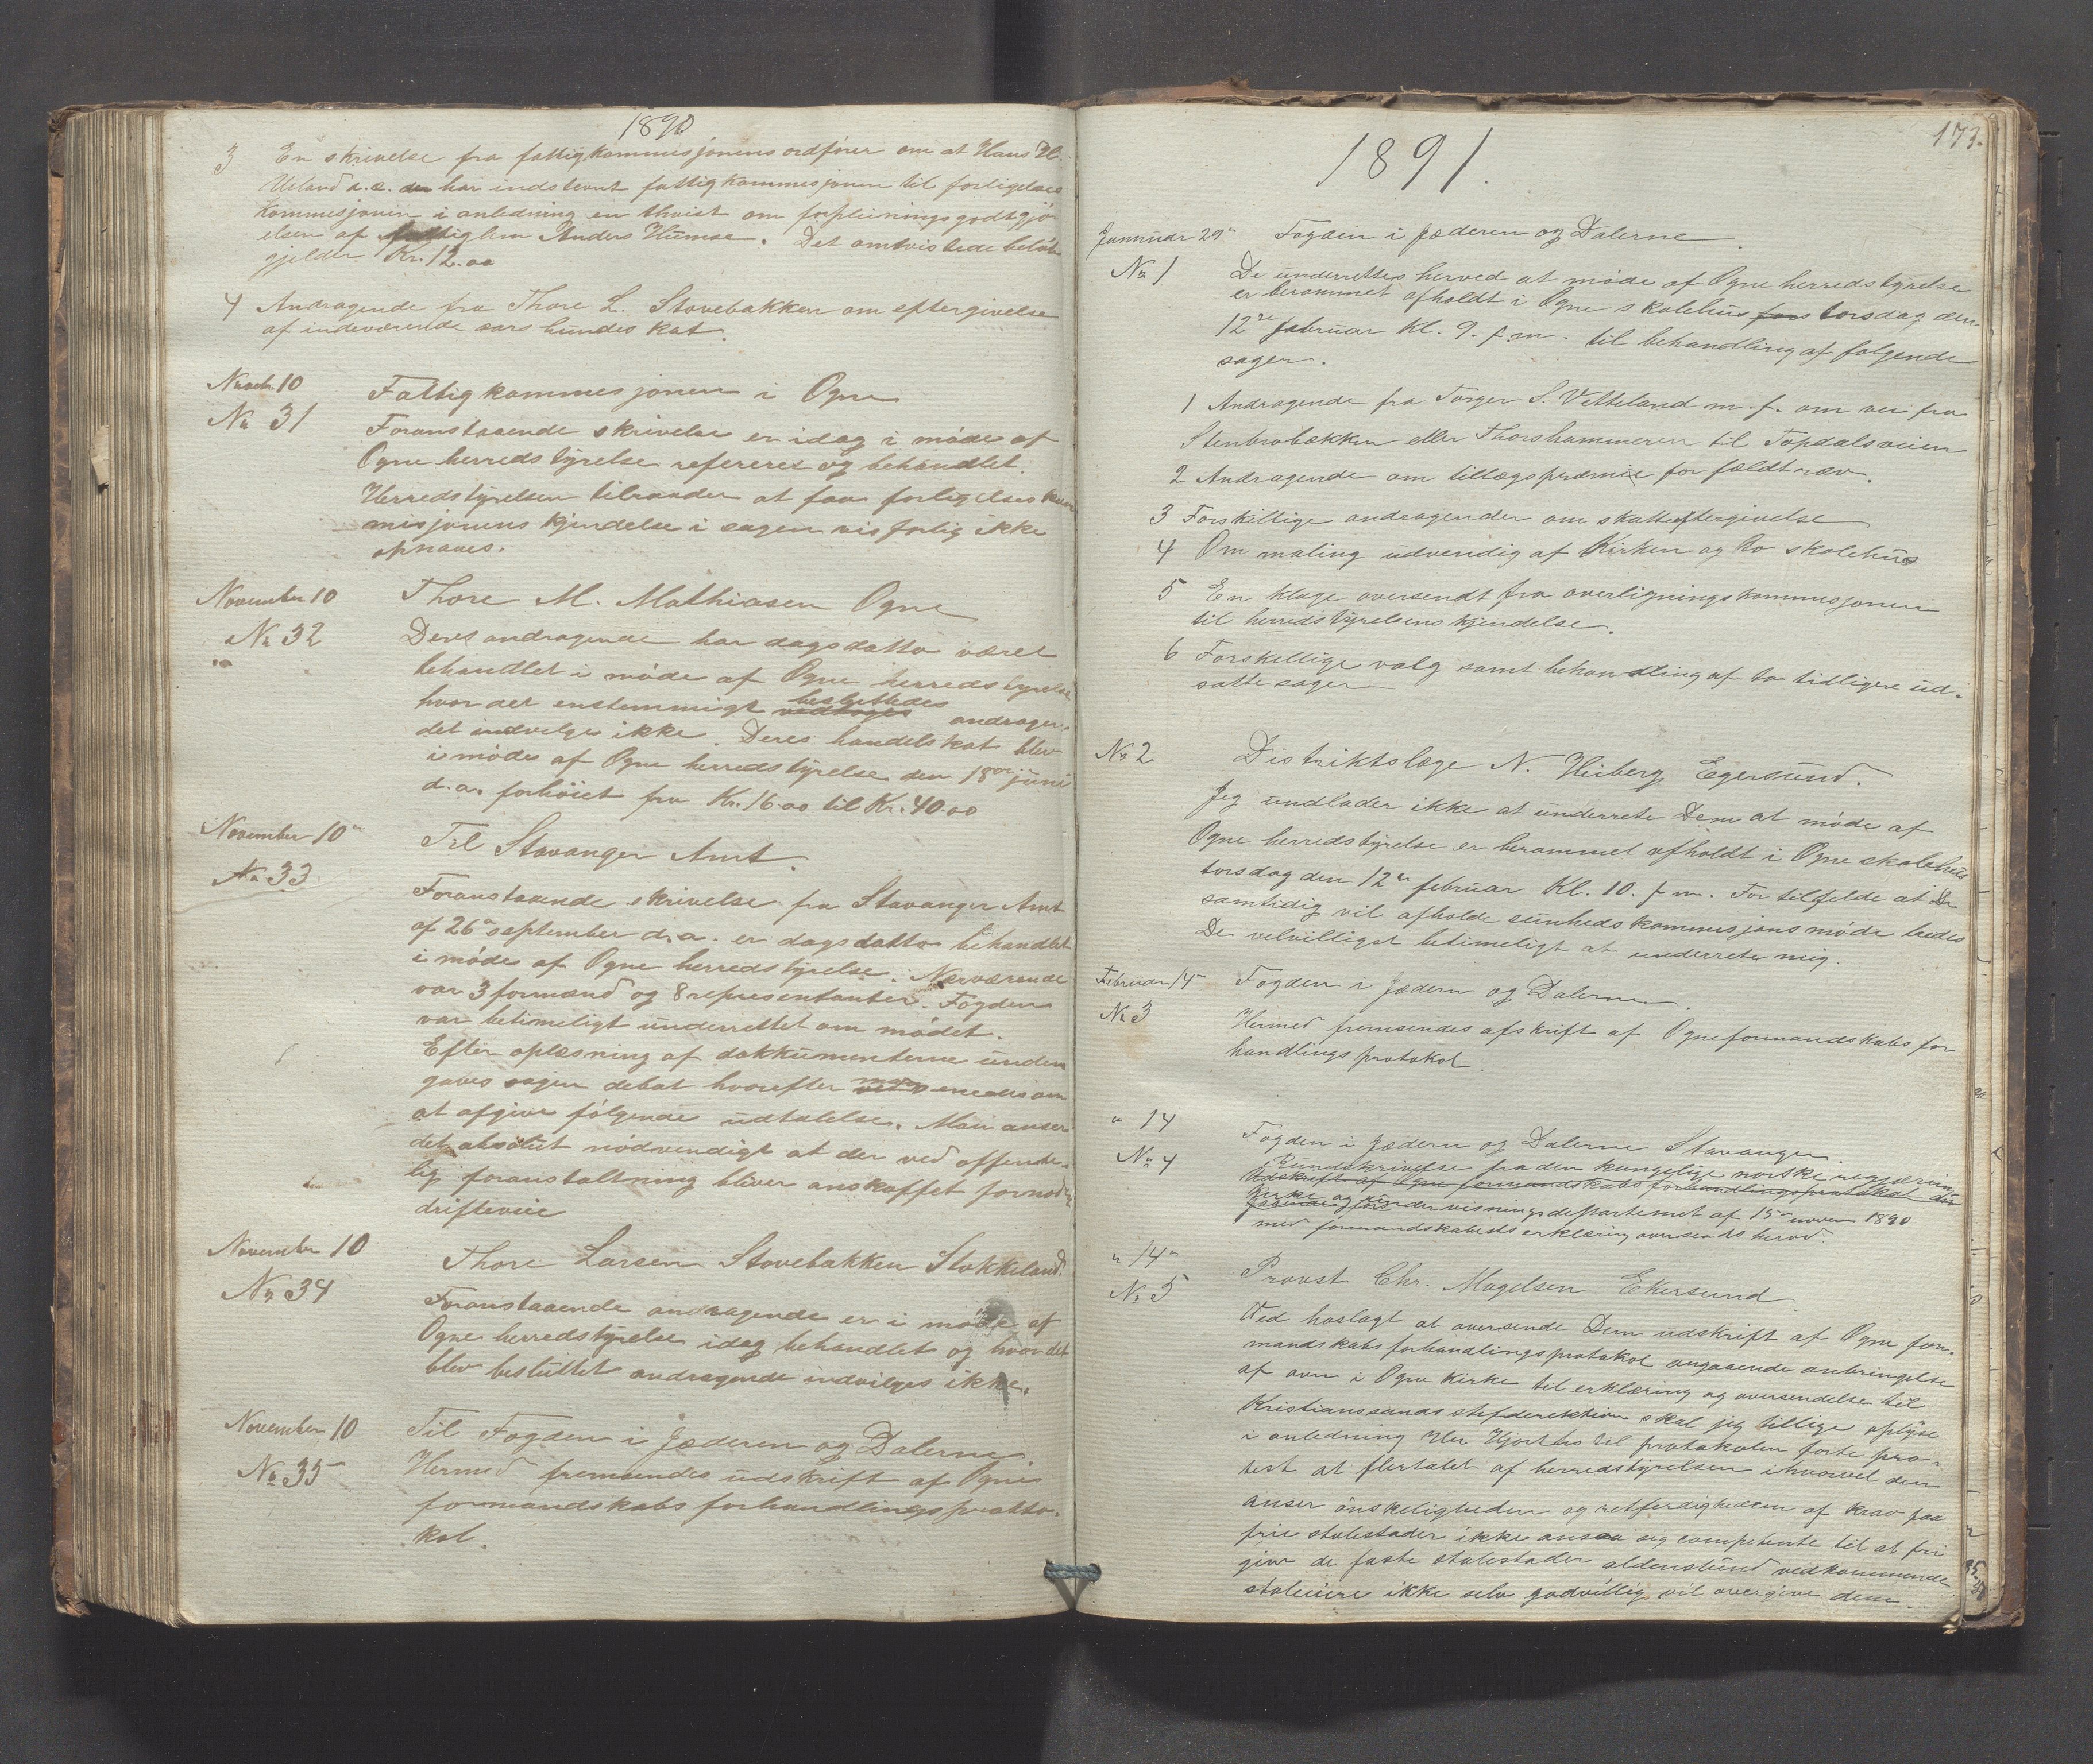 1890
3 En skrivelse fra fattigkommisjonens ordfører om at Hans H.
Ueland d.e. har indstevnt fattigkommesjonen til forligelses
kommesjonen i anledning en thvist om forpleiningsgodtgjø
elsen af fattiglem Anders Humse. Det omtvistede beløb
gjelder Kr. 12.00
4 Andragende fra Thore L. Stovebakken om eftergivelse
af indeværende aars hundeskat.
Novebr. 10
No 31
Fattigkommesjonen i Ogne
Foranstaaende skrivelse er idag i møde af
Ogne herredstyrelse refereret og behandlet.
Herredstyrelsen tilraader at faa forligelses kom
misjonens kjendelse i sagen vis forlig ikke
opnaaes.
November 10
No 32
Thore M. Mathiasen Ogne
Deres andragende har dagsdatto været
behandlet i møde af Ogne herredstyrelse
hvor det enstemmigt vedtoges besluttedes andragen
det indvilges ikke. Deres handelskat blev
i møde af Ogne herredstyrelse den 18de juni
d.a. forhøiet fra Kr. 16.00 til Kr. 40.00
November 10de
No 33
Til Stavanger Amt
Foranstaaende skrivelse fra Stavanger Amt
af 26de september d.a. er dagsdatto behandlet
i møde af Ogne herredstyrelse. Nærværende
var 3 formænd og 8 representanter. Fogden
var betimeligt underrettet om mødet.
Efter oplæsning af dokkumenterne unden
gaves sagen debat hvorefter man enedes om
at afgive følgende udtalelse. Man anser
det absolut nødvendigt at der ved offende-
lig foranstaltning bliver anskaffet fornøden
drifteveie
November 10
No 34
Thore Larsen Stovebakken Stokkeland.
Foranstaaende andragende er i møde af
Ogne herredstyrelse idag behandlet og hvor det
blev besluttet andragende indvilges ikke.
November 10
No 35
Til Fogden i Jæderen og Dalerne
Hermed fremsendes udskrift af Ogne
formandskabs forhandlingsprotto-
kol.
173.
1891.
Januar 29de
No 1
Fogden i Jæderen og Dalerne
De underrettes herved at møde af Ogne herredstyrelse
er berammet afholdt i Ogne skolehus torsdag den
12te februar Kl. 9. f.m. til behandling af følgende
sager.
1 Andragende fra Torger S. Vetteland m.f. om vei fra
Stenbrobækken eller Thorshammeren til Topdalsveien
2 Andragende om tillægspræmie for fældt ræv.
3 Forskillige andragender om skatteeftergivelse
4 Om maling udvendig af Kirken og Bo skolehus
5 En klage oversendt fra overligningskommesjonen
til herredstyrelsens kjendelse.
6 Forskellige valg samt behandling af to tidligere ud-
satte sager
No 2
Distriktslæge N. Heiberg Egersund.
Jeg undlader ikke at underrete Dem at møde af
Ogne herredstyrelse er berammet afholdt i Ogne skolehus
torsdag den 12te februar Kl. 10. f.m. For tilfelde at De
samtidig vil afholde sunhedskommesjonsmøde bedes
De velvilligst betimeligt at underrete mig.
Februar 14de
No 3
Fogden i Jædern og Dalerne
Hermed fremsendes afskrift af Ogne formandskabs for
handlingsprotokol.
" 14
No 4
Fogden i Jædern og Dalerne Stavanger.
Rundskrivelse fra den kongelige norske regjering
Udskrift af Ogne formandskabs forhandlingsprotokol
Kirke og undervisningsdepartemet af 15de novem 1890
med formandskabets erklæring oversendes herved.
" 14de
No 5
Provst Chr. Magelsen Ekersund
Ved hoslagt at oversende Dem udskrift af Ogne for-
mandskabs forhandlingsprotokol angaaende anbringelse
af ovn i Ogne kirke til erklæring og oversendelse til
Kristianssands stifderektion skal jeg tillige oplyse
i anledning Her Hjorths til protokolen førte pro-
test at flertalet af herredstyrelsen ihvorvel den
anser ønskeligheden og retferdigheden af krav paa
frie stolestader ikke ansaa sig competente til at fri
give de faste stolestader aldenstund vedkommende
stoleiere ikke selv godvillig vil overgive dem.